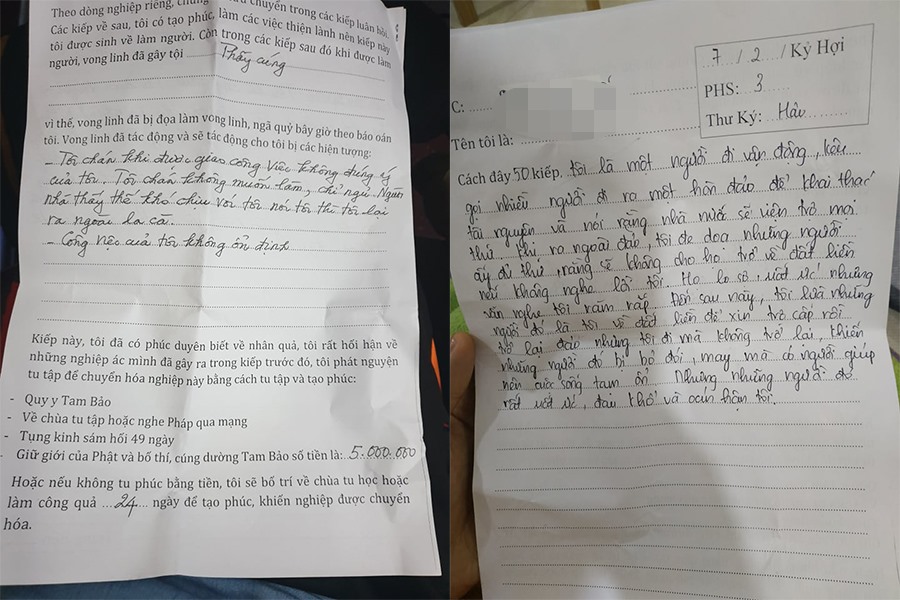 Theo dòng nghiệp riêng, chuyển trong các kiếp luân hồi.
Các kiếp về sau, tôi có tạo phúc, làm các việc thiện lành nên kiếp này
tôi được sinh về làm người. Còn trong các kiếp sau đó khi được làm
người, vong linh đã gây tội Thầy cúng
vì thế, vong linh đã bị đọa làm vong linh, ngã quỷ bây giờ theo báo oán
tôi. Vong linh đã tác động và sẽ tác động cho tôi bị các hiện tượng:
- Tôi chán khi được giao công việc không đúng ý
của tôi. Tôi chán không muốn làm, chỉ ngủ. Người
nhà thấy thế khó chịu với tôi nói tôi thì tôi lại
ra ngoài la cà.
- Công việc của tôi không ổn định
Kiếp này, tôi đã có phúc duyên biết về nhân quả, tôi rất hối hận về
những nghiệp ác mình đã gây ra trong kiếp trước đó, tôi phát nguyện
tu tập để chuyển hóa nghiệp này bằng cách tu tập và tạo phúc:
- Quy y Tam Bảo
- Về chùa tu tập hoặc nghe Pháp qua mạng
- Tụng kinh sám hối 49 ngày
- Giữ giới của Phật và bố thí, cúng dường Tam Bảo số tiền là: 5.000.000
Hoặc nếu không tu phúc bằng tiền, tôi sẽ bố trí về chùa tu học hoặc
làm công quả 24 ngày để tạo phúc, khiến nghiệp được chuyển
hóa.
7 / 2 / Kỷ Hợi
PHS: 3
Thư Ký: Hậu
C:
Tên tôi là:
Cách đây 50 kiếp, tôi là một người đi vận động, kêu
gọi nhiều người đi ra một hòn đảo để khai thác
tài nguyên và nói rằng nhà nước sẽ viện trợ mọi
thứ. Khi ra ngoài đảo, tôi đe dọa những người
ấy đủ thứ, rằng sẽ không cho họ trở về đất liền
nếu không nghe lời tôi. Họ lo sợ, uất ức nhưng
vẫn nghe tôi răm rắp. Đến sau này, tôi lừa những
người đó là tôi về đất liền để xin trợ cấp rồi
trở lại đảo nhưng tôi đi mà không trở lại, khiến
những người đó bị bỏ đói, may mà có người giúp
nên cuộc sống tạm ổn. Nhưng những người đó
rất uất ức, đau khổ và oán hận tôi.